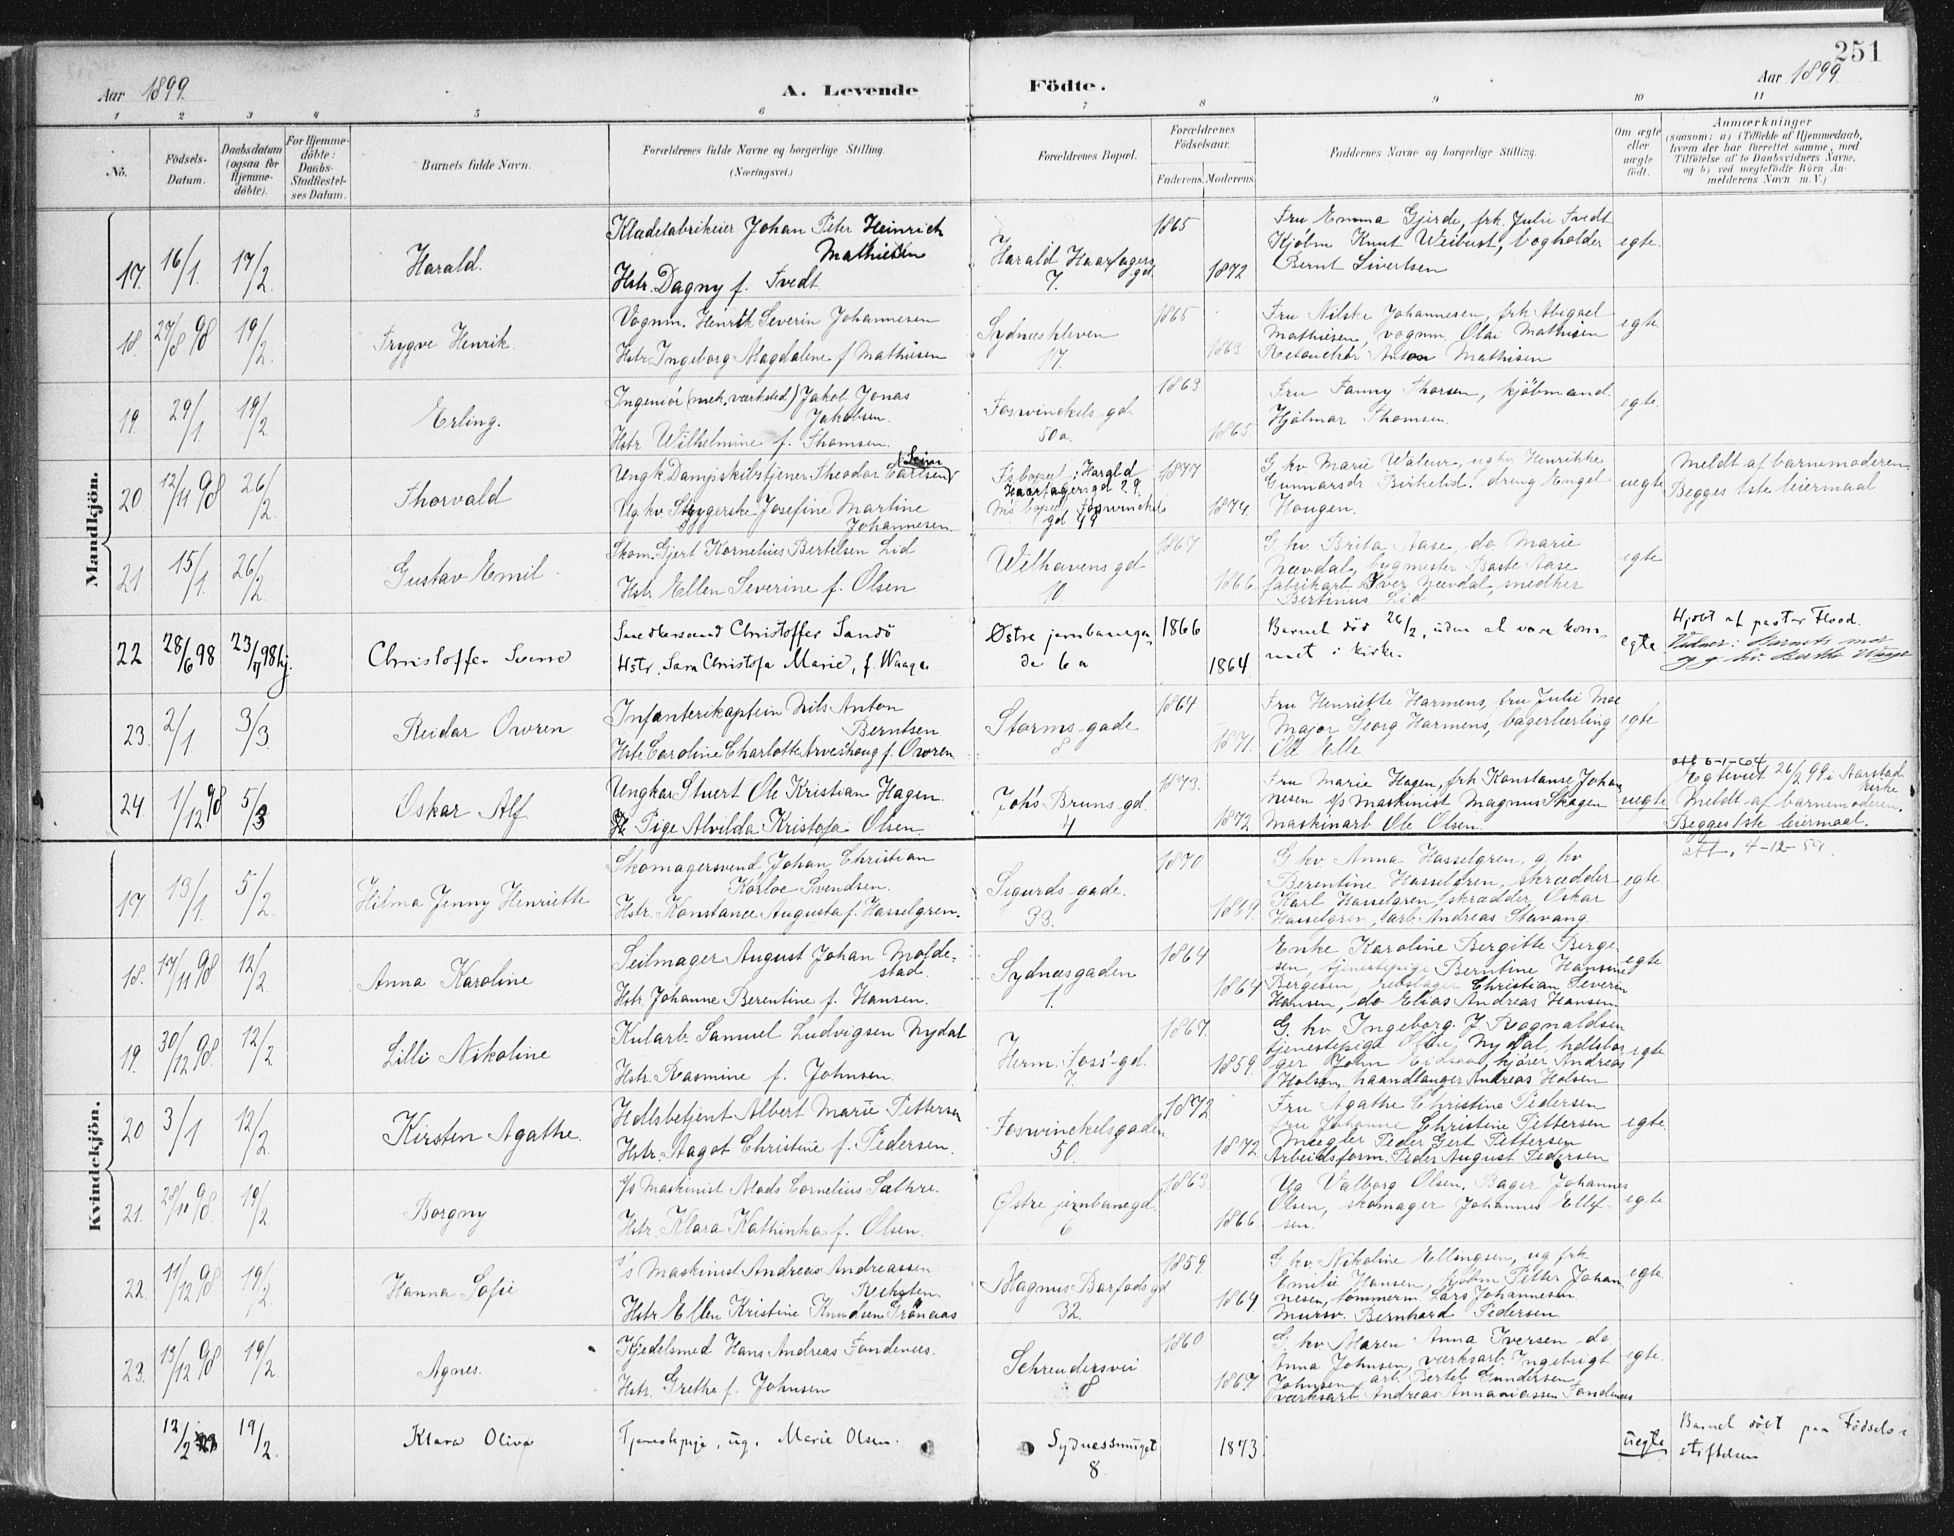 251
Aar 1899. A. Levende Födte. Aar 1899
1 2 3 4 5 6 7 8 9 10 11
No.
Födsels-Datum.
Daabsdatum (ogsaa for Hjemme-döbte).
For Hjemme-döbte: Daabs-Stadfæstel-ses Datum.
Barnets fulde Navn.
Forældrenes fulde Navne og borgerlige Stilling. (Næringsvei.)
Forældrenes Bopæl.
Forældrenes Födselsaar.
Faderens. Moderens.
Faddernes Navne og borgerlige Stilling.
Om ægte eller uægte födt.
Anmærkninger
(saasom: a) i Tilfælde af Hjemmedaab, hvem der har forrettet samme, med Tilföielse af to Daabsvidners Navne, og b) ved uægtefödte Börn An-melderens Navn m. V.)
Mandkjön.
17. 16/1. 17/2 Harald.
Johan Peter Heinrich
Mathiesen
Hstr. Dagny f. Tvedt
Harald Haarfagers gd
7.
1865
1872
Fru Emma Gjerde, frk. Julie Tvedt
Kjöbm Knut Weibust, bogholder
Bernt Sivertsen
egte.
18. 27/8 98 19/2. Trygve Henrik.
Vognm. Henrik Severin Johannesen
Hstr. Ingeborg Magdalene f Mathiesen
Sydneskleven
17.
1865
1863
Fru Nilske Johannesen, frk Abigael
Mathiesen, vognm. Olai Mathisen
Retouchör Anton Mathisen
egte
19. 29/1. 19/2 Erling.
Ingeniör (mek. værksted) Jakob Jonas
Jakobsen.
Hstr. Wilhelmine f. Thomsen.
Foswinckels gd
50a.
1863
1865
Fru Fanny Thorsen, kjöbmand
Hjalmar Thomsen.
egte.
20 12/11 98 26/2. Thorvald
Ungk. Dampskibstjener Theodor Carlsen
Ug. kv. Strygerske Josefine Martine
Johannesen.
Fs bopæl: Harald
Haarfagersgd 29.
Ms bopæl Foswinckels
gd 49
1877
1874.
G. kv. Marie Waleur, ugkv Henrikke
Gunnarsdr Birkelid, dreng Engel
Haugen.
uegte
Meldt af barnemoderen
Begges 1ste leiermaal
21. 15/1. 26/2. Gustav Emil.
Skom. Gjert Kornelius Bertelsen Lid
Hstr. Ellen Severine f. Olsen
Wilhavens gd
10.
1867
1866.
G. kv. Brita Aase, do Marie
Nævdal, bygmester Baste Aase
fabrikarb Iver Nævdal, snedker
Bertinus Lid
egte
22 28/6 98 23/7 98 hj. Christoffer Svend
Snedkersvend Christoffer Sandö
Hstr. Sara Christofa Marie, f. Waage
Østre jernbanega-
de 6a
1866
1864
Barnet död 26/2, uden at være kom-
met i kirke.
egte
Hjdbt af pastor Flood.
Vidner: Barnets mor
og g. kv. Berthe Waage
23. 2/1. 3/3. Reidar Owren
Infanterikaptein Nils Anton
Berntsen
Hstr Caroline Charlotte Arveschoug f. Owren
Storms gade
8
1864
1871.
Fru Henriette Harmens, fru Julie Moe
Major Georg Harmens, bagerlærling
Ole Elle
egte
24. 1/12 98 5/3 Oskar Alf
Ungkar Stuert Ole Kristian Hagen.
Pige Alvilda Kristofa Olsen
Joh's Bruns gd.
4
1873.
1872
Fru Marie Hagen, frk Konstanse Johan
nesen s/s Maskinist Magnus Skagen
Maskinarb Ole Olsen.
uegte
att 6-1-64
Egteviet 26/2 99 i Aarstad
kirke
Meldt af barnemoderen.
Begges 1ste leiermaal.
att. 4-12-59.
Kvindekjön.
17. 13/1 5/2 Hilma Jenny Henriette
Skomagersvend Johan Christian
Karloe Svendsen.
Hstr. Konstance Augusta f. Hasselgren.
Sigurds gade.
33.
1870
1869.
G kv Anna Hasselgren, g. kv
Berentine Hasselgren, skrædder
Karl Hasselgren, skrædder, Oskar
Hasselgren, arb. Andreas Stavang
egte
18. 17/11 98 12/2. Anna Karoline
Seilmager August Johan Molde-
stad.
Hstr. Johanne Berentine f. Hansen.
Sydnæsgaden
1.
1864
1864
Enke Karoline Bergitte Berge
sen, tjenestepige Berntine Hansine
Bergesen, rebslager Christian Severin
Hansen, do Elias Andreas Hansen.
egte
19. 30/12 98. 12/2. Lilli Nikoline
Kularb. Samuel Ludvigsen Nydal
Hstr. Rasmine f. Johnsen.
Herm. Foss' gd.
7.
1867.
1859.
G. kv. Ingeborg J. Rognaldsen
tjenestepige Oline Nydal,
ger John Eidsaa, kjörer Andreas
Holsen, haandlanger Andreas Holsen
egte
20 3/1 12/2 Kirsten Agathe.
Hdlsbetjent Albert Marie Pettersen
Hstr. Aagot Christine f. Pedersen.
Foswinckelsgaden
50.
1872
1872
Fru Agathe Christine Pedersen
fru Johanne Christine Pettersen
Mægler Peder Gert Pettersen
Arbeidsform. Peder August Pedersen
egte.
21. 28/10 98. 19/2 Borgny
s/s Maskinist Mads Cornelius Sathre.
Hstr. Klara Kathinka f. Olsen.
Østre jernbanegd.
6
1863.
1866.
Ug Valborg Olsen. Bager Johannes
Olsen, skomager Johannes Ellef-
sen.
egte
22. 11/12 98 19/2. Hanna Sofie
s/s Maskinist Andreas Andreassen
Hstr Ellen Kristine Knudsen Grönaas
Magnus Barfods gd
32.
1859.
1864
G. kv. Nikoline Ellingsen, ug frk
Emilie Hansen, kjöbm Petter Johan
nesen, tömmerm. Lars Johannesen.
Mursv. Bernhard Pedersen.
egte.
23. 13/12 98 19/2. Agnes.
Kjedelsmed Hans Andreas Fondenes.
Hstr. Grethe f. Johnsen
Schrendersvei
8
1860
1867
G. kv. Maren Anna Iversen do
Anna Johnsen, værksarb. Ingebrigt
Johnsen, arb. Bertel Gundersen,
værksarb Andreas Annaniassen Fondenes
egte.
12/2 19/2. Klara Oliva
Tjenestepige, ug. Marie Olsen.
Sydnessmuget
8.
1873
uegte
Barnet döbt paa Födsels-
stiftelsen